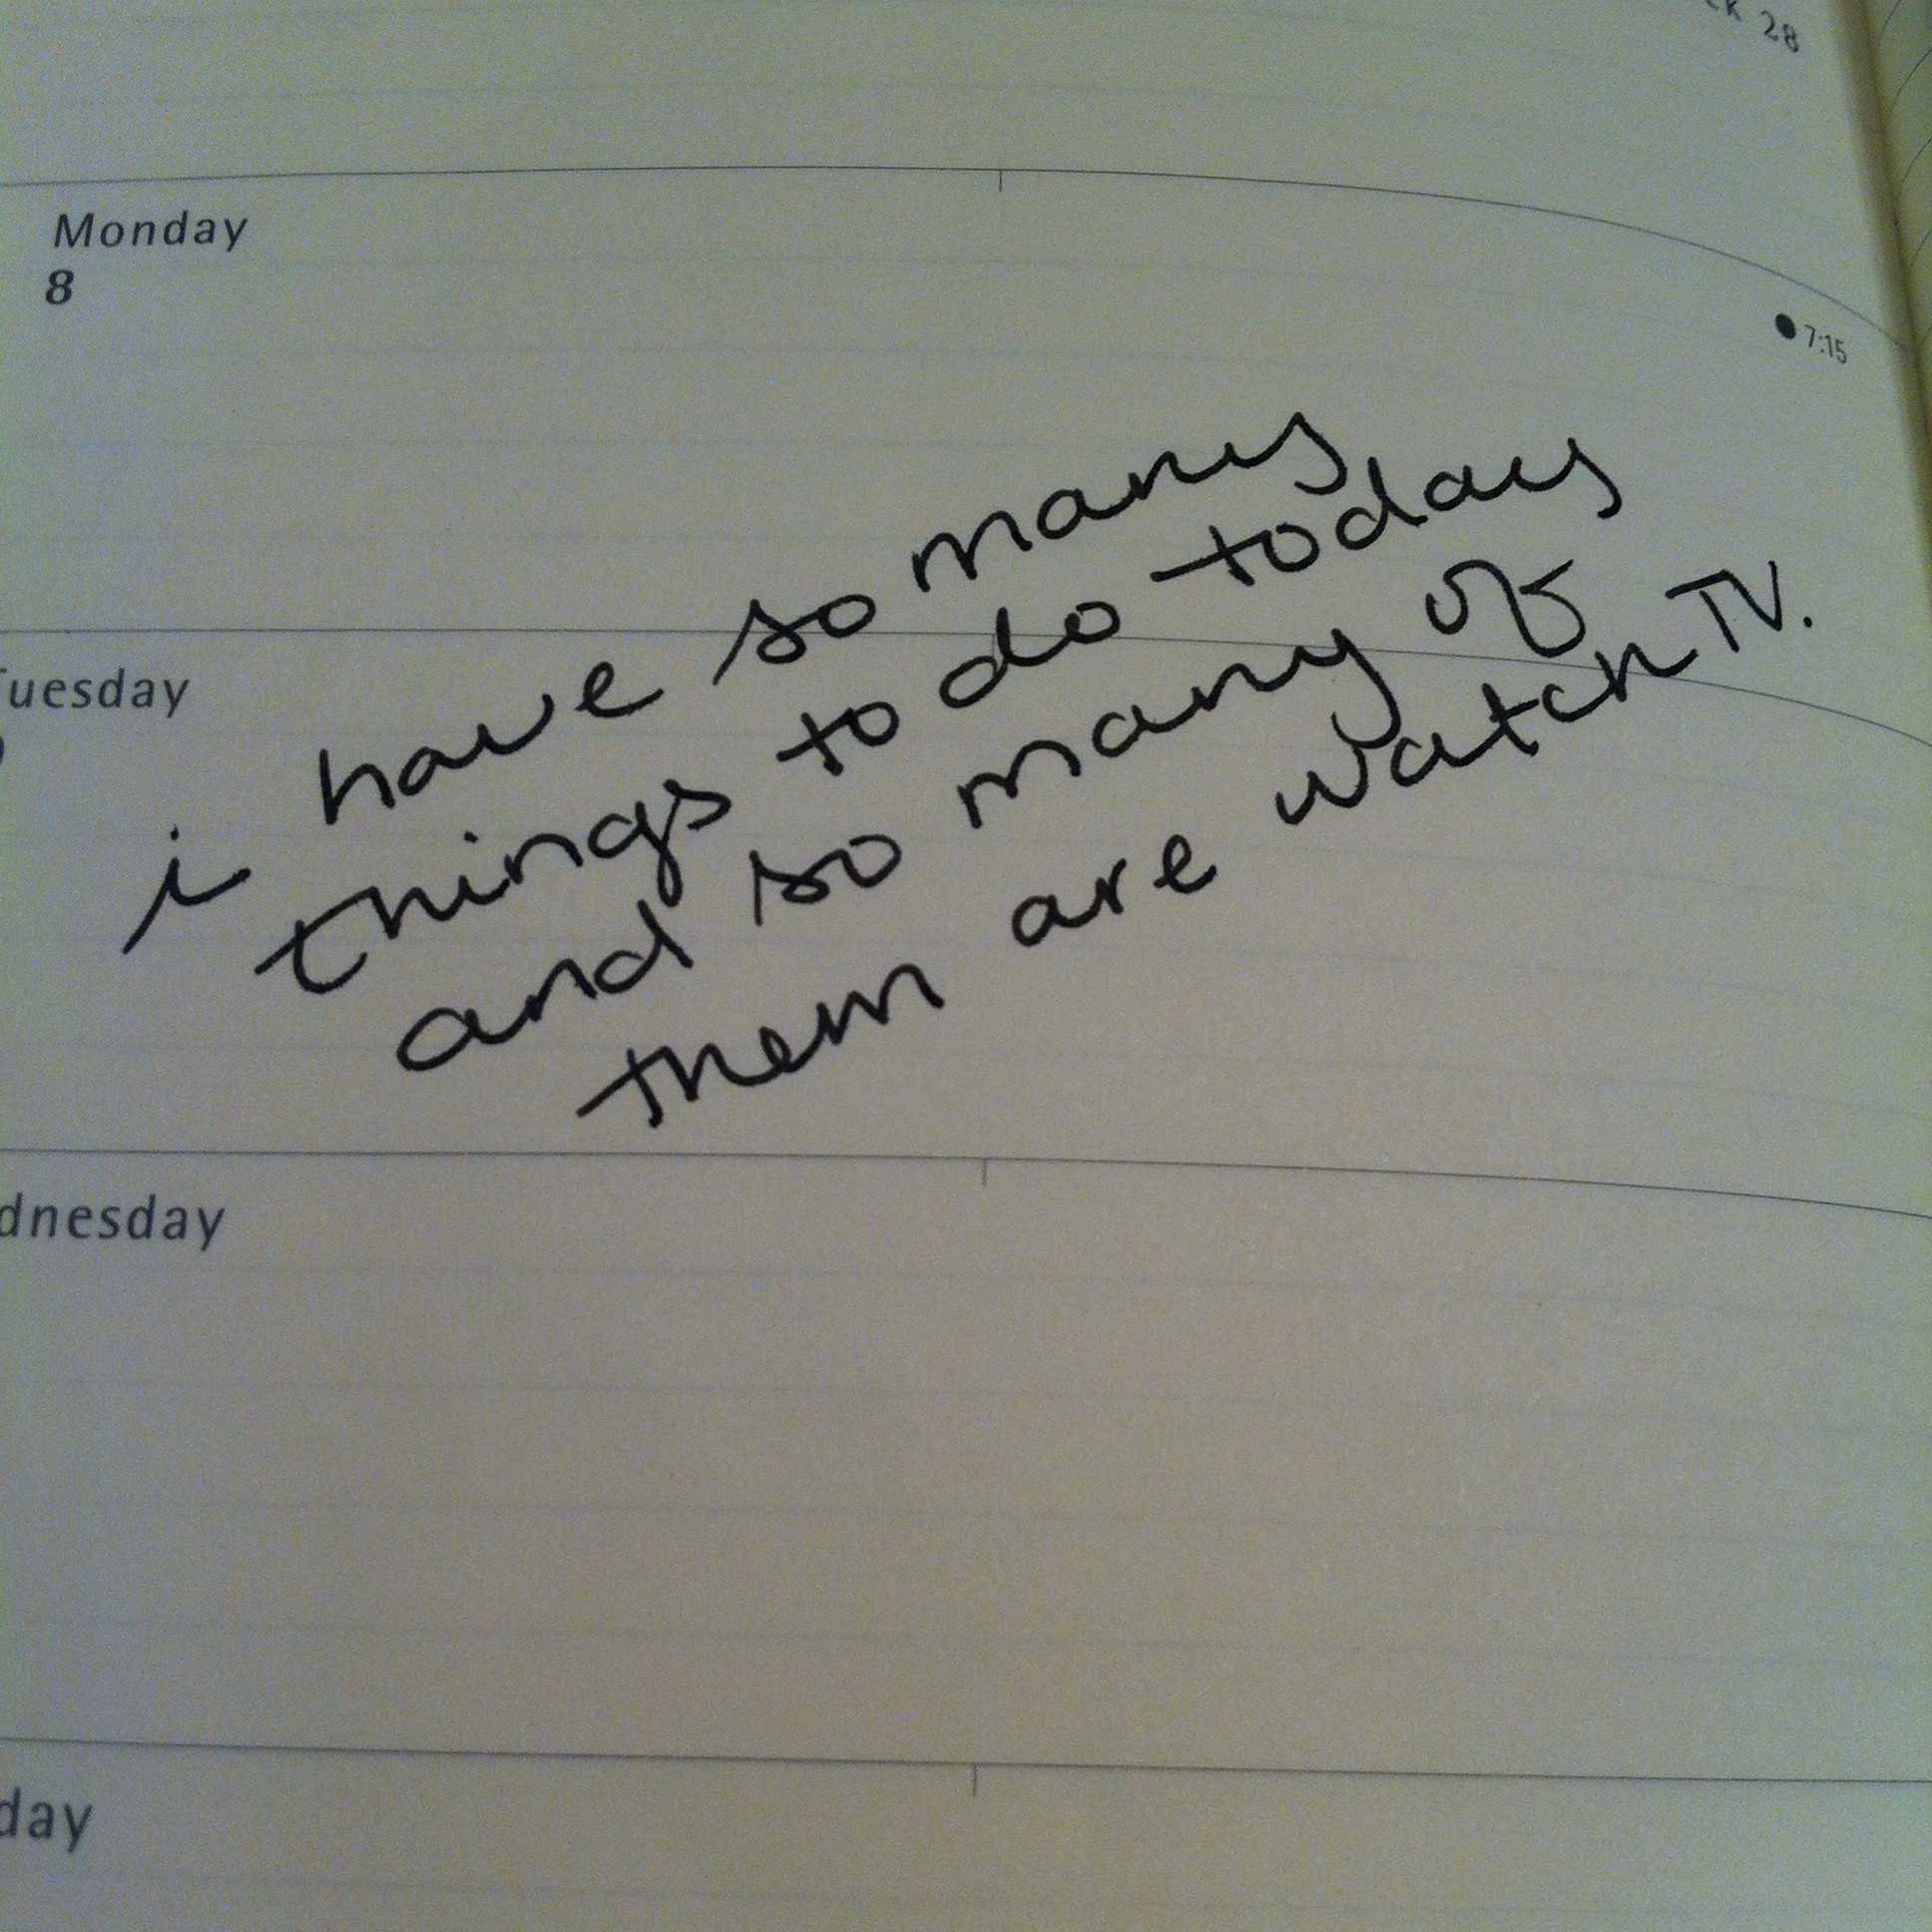 28
Monday
8
7:15
i have so many
things to do today
and so many of
them are watch TV.
uesday
dnesday
day